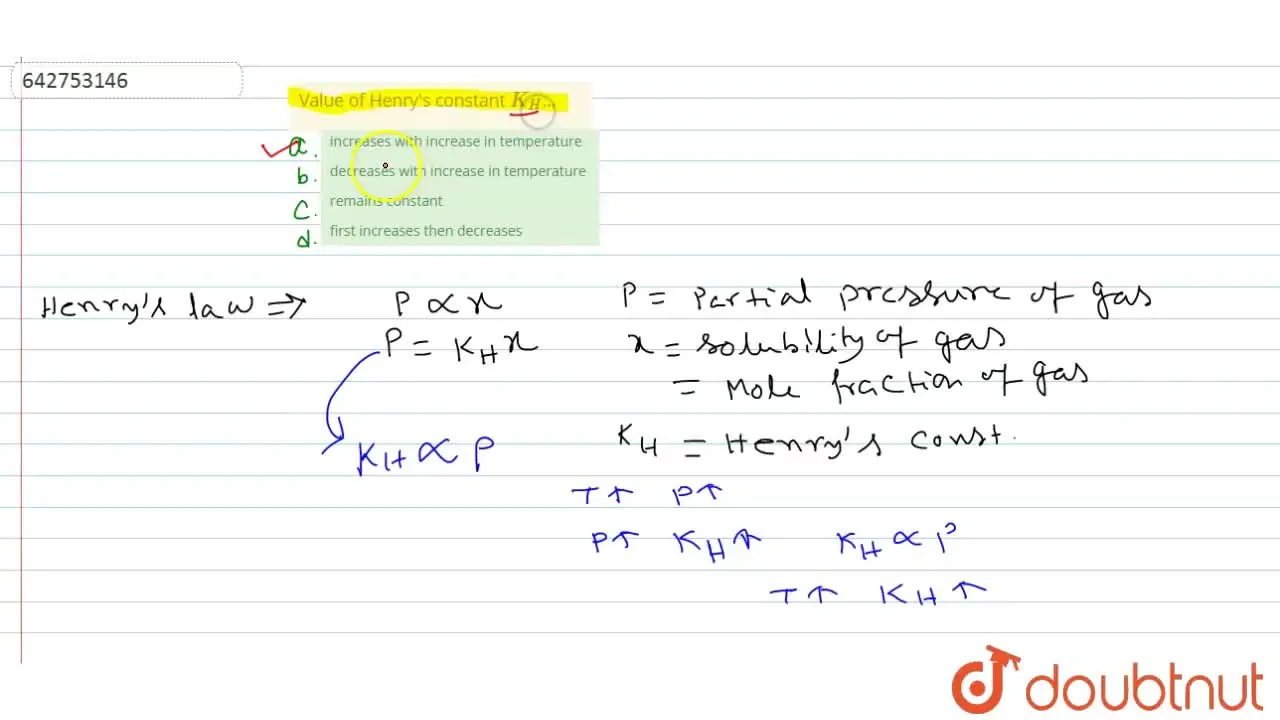 642753146
Value of Henry's constant K_H...
a. increases with increase in temperature
b. decreases with increase in temperature
c. remains constant
d. first increases then decreases
Henry's law ⇒ P ∝ x
P = K_H x
K_H ∝ P
P = Partial pressure of gas
x = solubility of gas
= Mole fraction of gas
K_H = Henry's const.
T↑ P↑
P↑ K_H↑ K_H ∝ P
T↑ K_H↑
doubtnut